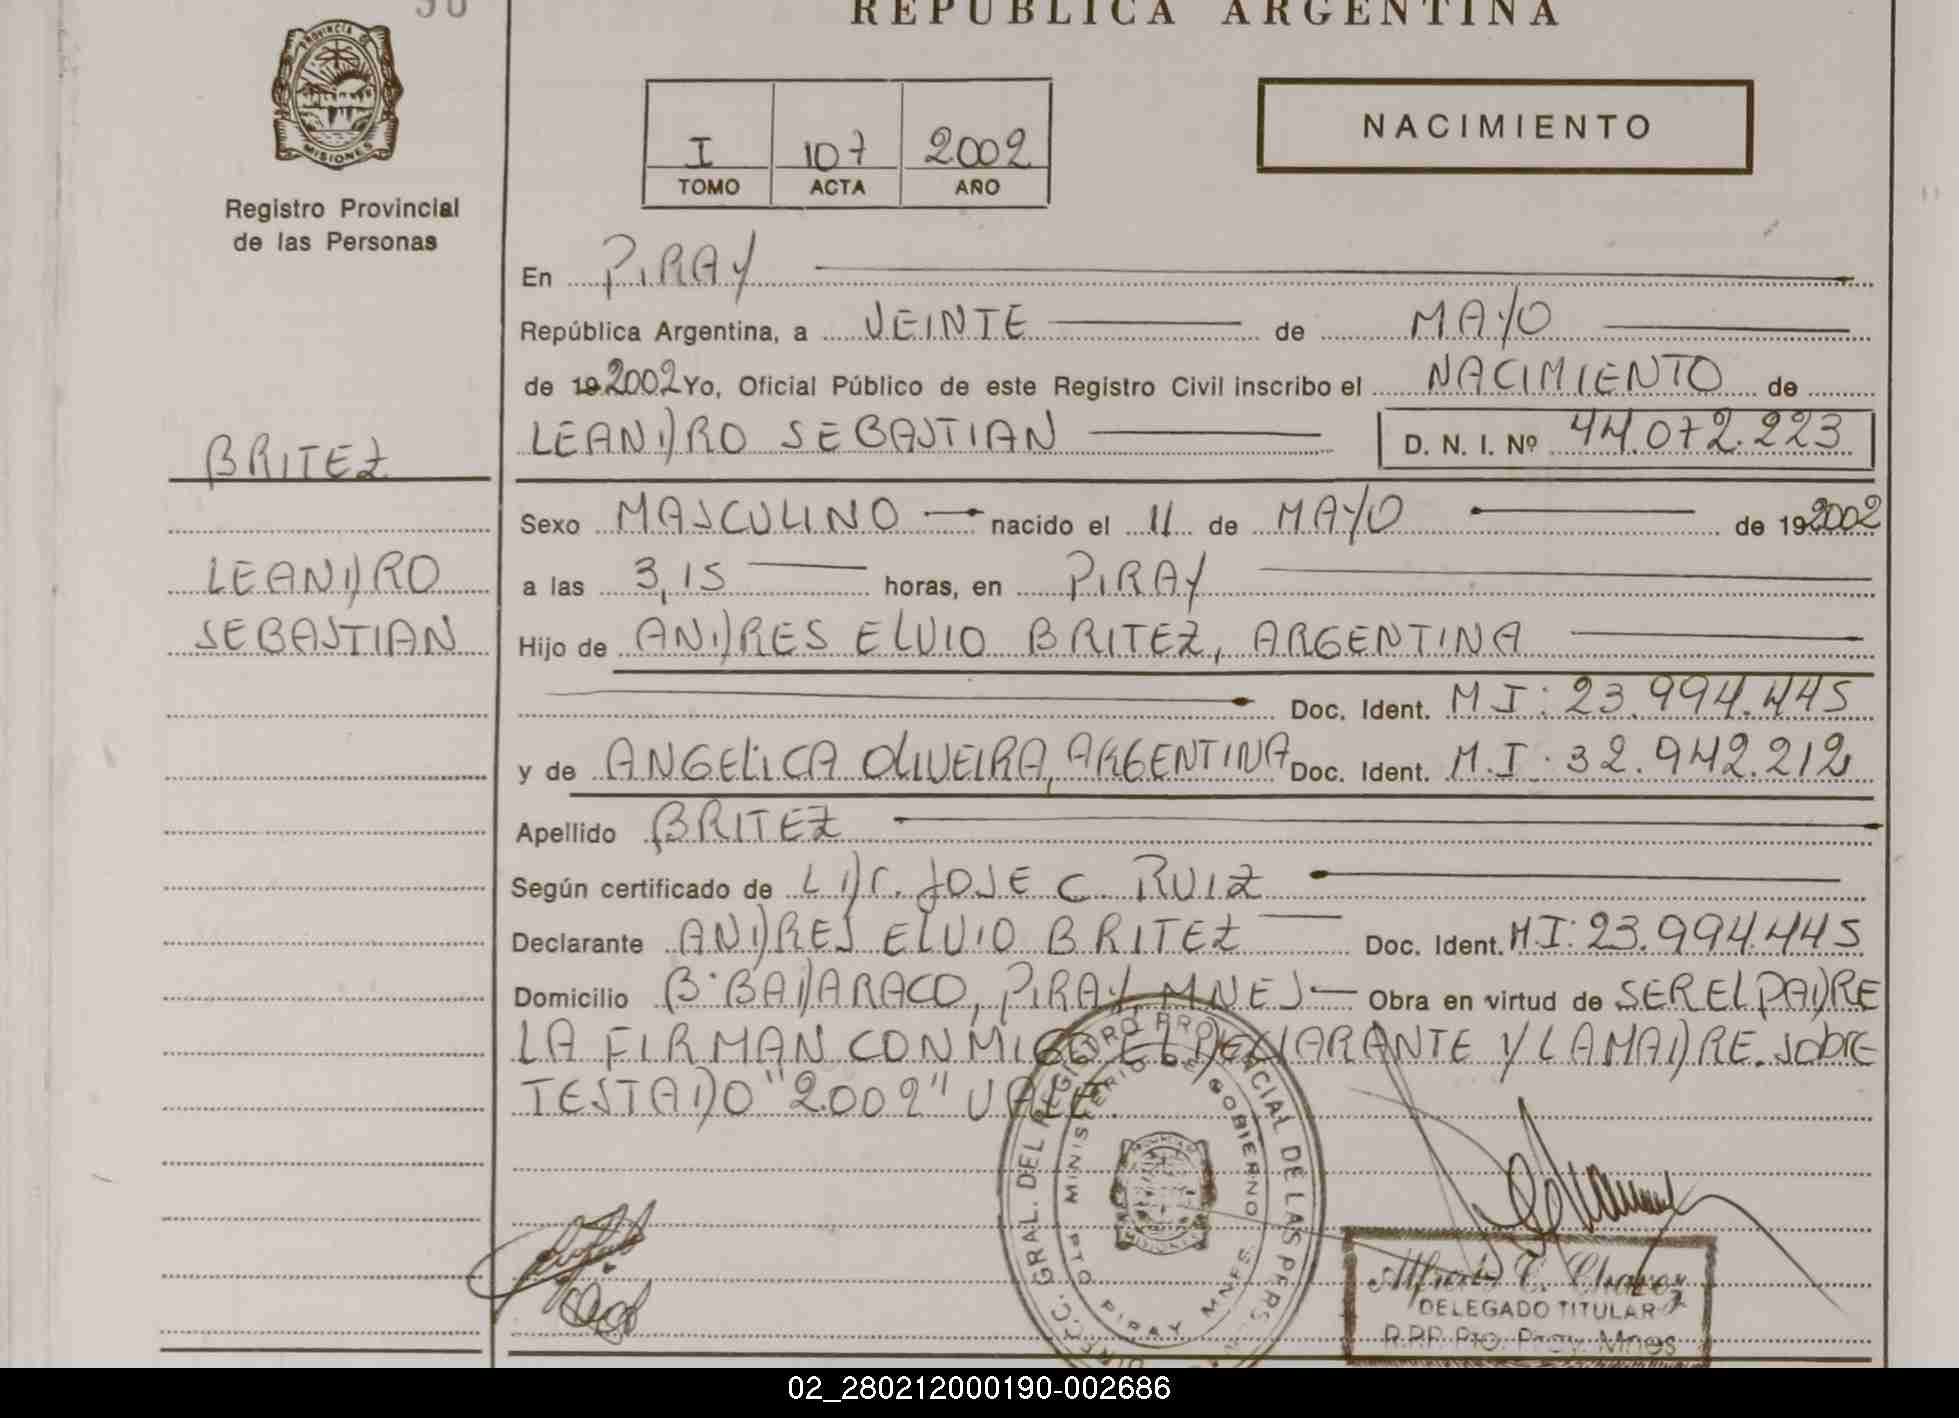 REPUBLICA ARGENTINA
PROVINCIA DE
MISIONES
Registro Provincial
de las Personas
I 107 2002
TOMO ACTA AÑO
NACIMIENTO
En PIRAY
República Argentina, a VEINTE de MAYO
de 19 2002 Yo, Oficial Público de este Registro Civil inscribo el NACIMIENTO de
LEANDRO SEBASTIAN D. N. I. Nº 44.072.223
BRITEZ
LEANDRO
SEBASTIAN
Sexo MASCULINO nacido el 11 de MAYO de 19 2002
a las 3,15 horas, en PIRAY
Hijo de ANDRES ELVIO BRITEZ, ARGENTINA
Doc. Ident. M I: 23.994.445
y de ANGELICA OLIVEIRA, ARGENTINA Doc. Ident. M.I: 32.942.212
Apellido BRITEZ
Según certificado de JOSE C. RUIZ
Declarante ANDRES ELVIO BRITEZ Doc. Ident. MI: 23.994.445
Domicilio Bº BADARACO, PIRAY, MNES Obra en virtud de SER EL PADRE
LA FIRMAN CONMIGO EL DECLARANTE Y LA MADRE. Sobre
TESTADO "2.002" VALE.
DIRECC. GRAL. DEL REGISTRO PROVINCIAL DE LAS PERS.
MINISTERIO DE GOBIERNO
PTO PIRAY MNES.
Alfredo C. Chavez
DELEGADO TITULAR
R.P.P. Pto. Piray. Mnes
02_280212000190-002686